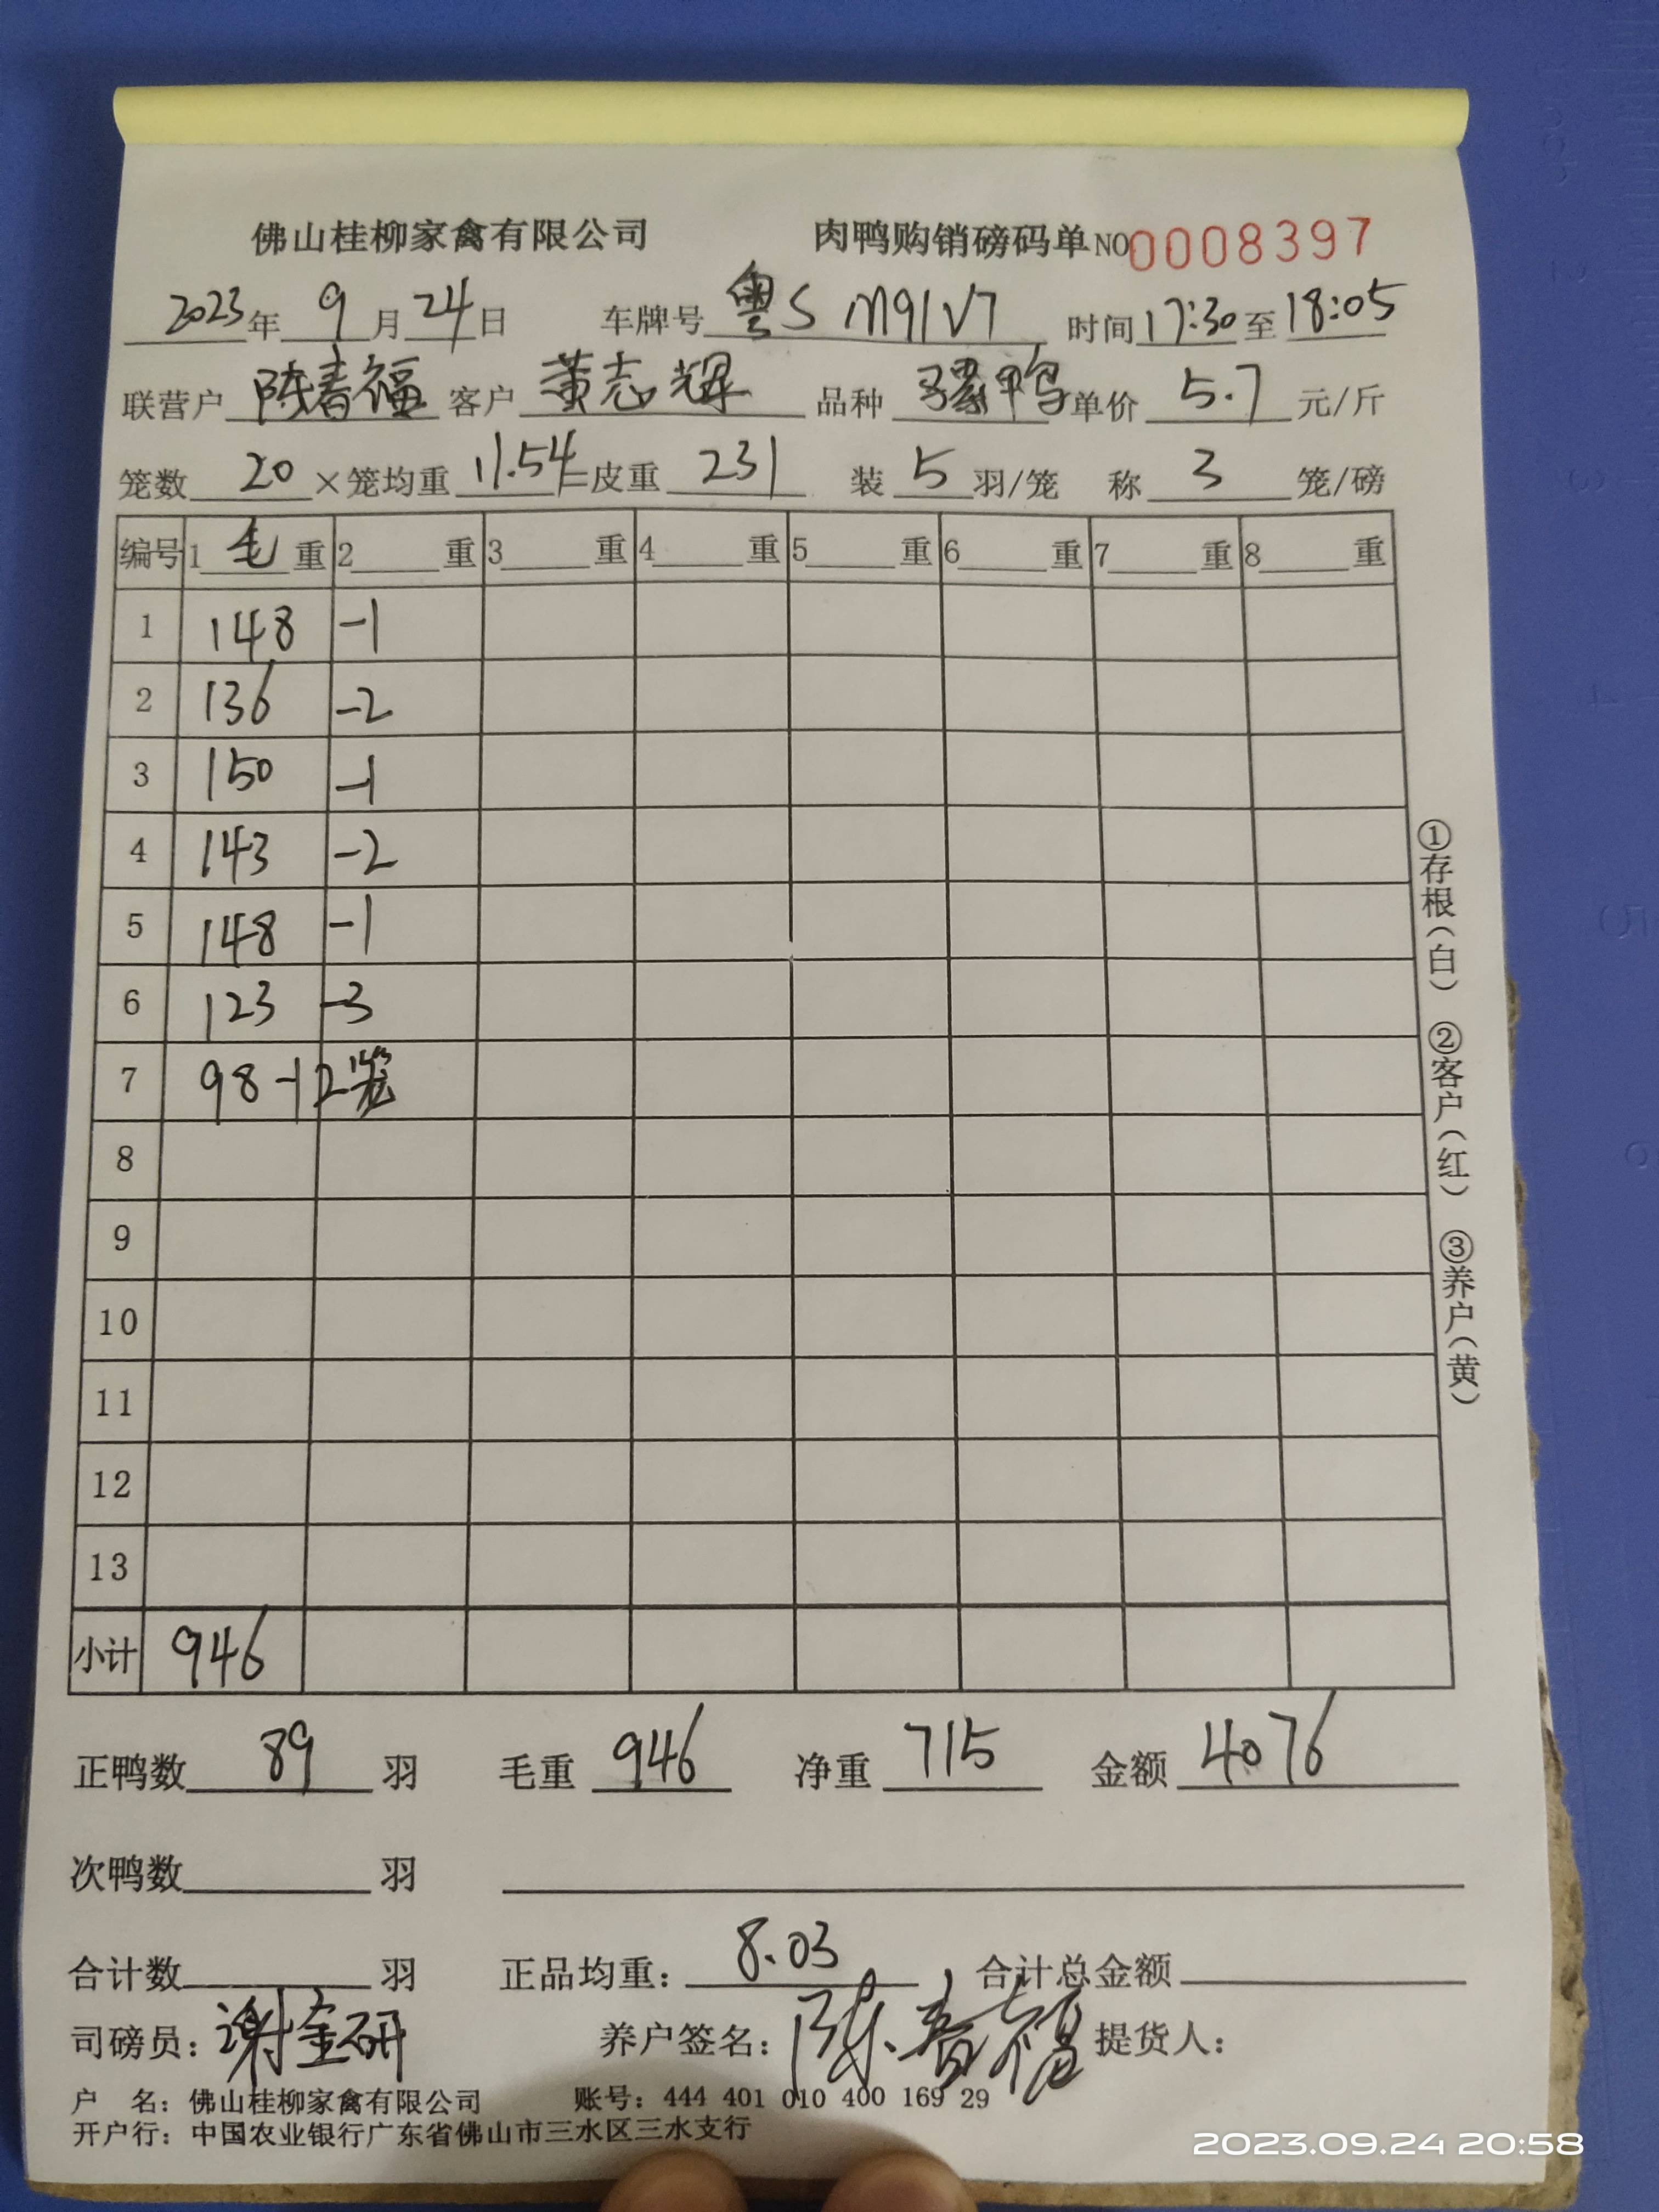 佛山桂柳家禽有限公司 肉鸭购销磅码单 NO0008397
2023年 9月 24日 车牌号 粤S M91V7 时间 17:30 至 18:05
联营户 陈春福 客户 黄志辉 品种 骡鸭 单价 5.7 元/斤
笼数 20 ×笼均重 11.54 =皮重 231 装 5 羽/笼 称 3 笼/磅
编号 1 毛 重 2 重 3 重 4 重 5 重 6 重 7 重 8 重
1 148 -1
2 136 -2
3 150 -1
4 143 -2
5 148 -1
6 123 -3
7 98 -1 2笼
8
9
10
11
12
13
小计 946
①存根(白) ②客户(红) ③养户(黄)
正鸭数 89 羽 毛重 946 净重 715 金额 4076
次鸭数 羽
合计数 羽 正品均重: 8.03 合计总金额
司磅员: 谢金研 养户签名: 陈春福 提货人:
户 名: 佛山桂柳家禽有限公司 账号: 444 401 010 400 169 29
开户行: 中国农业银行广东省佛山市三水区三水支行
2023.09.24 20:58